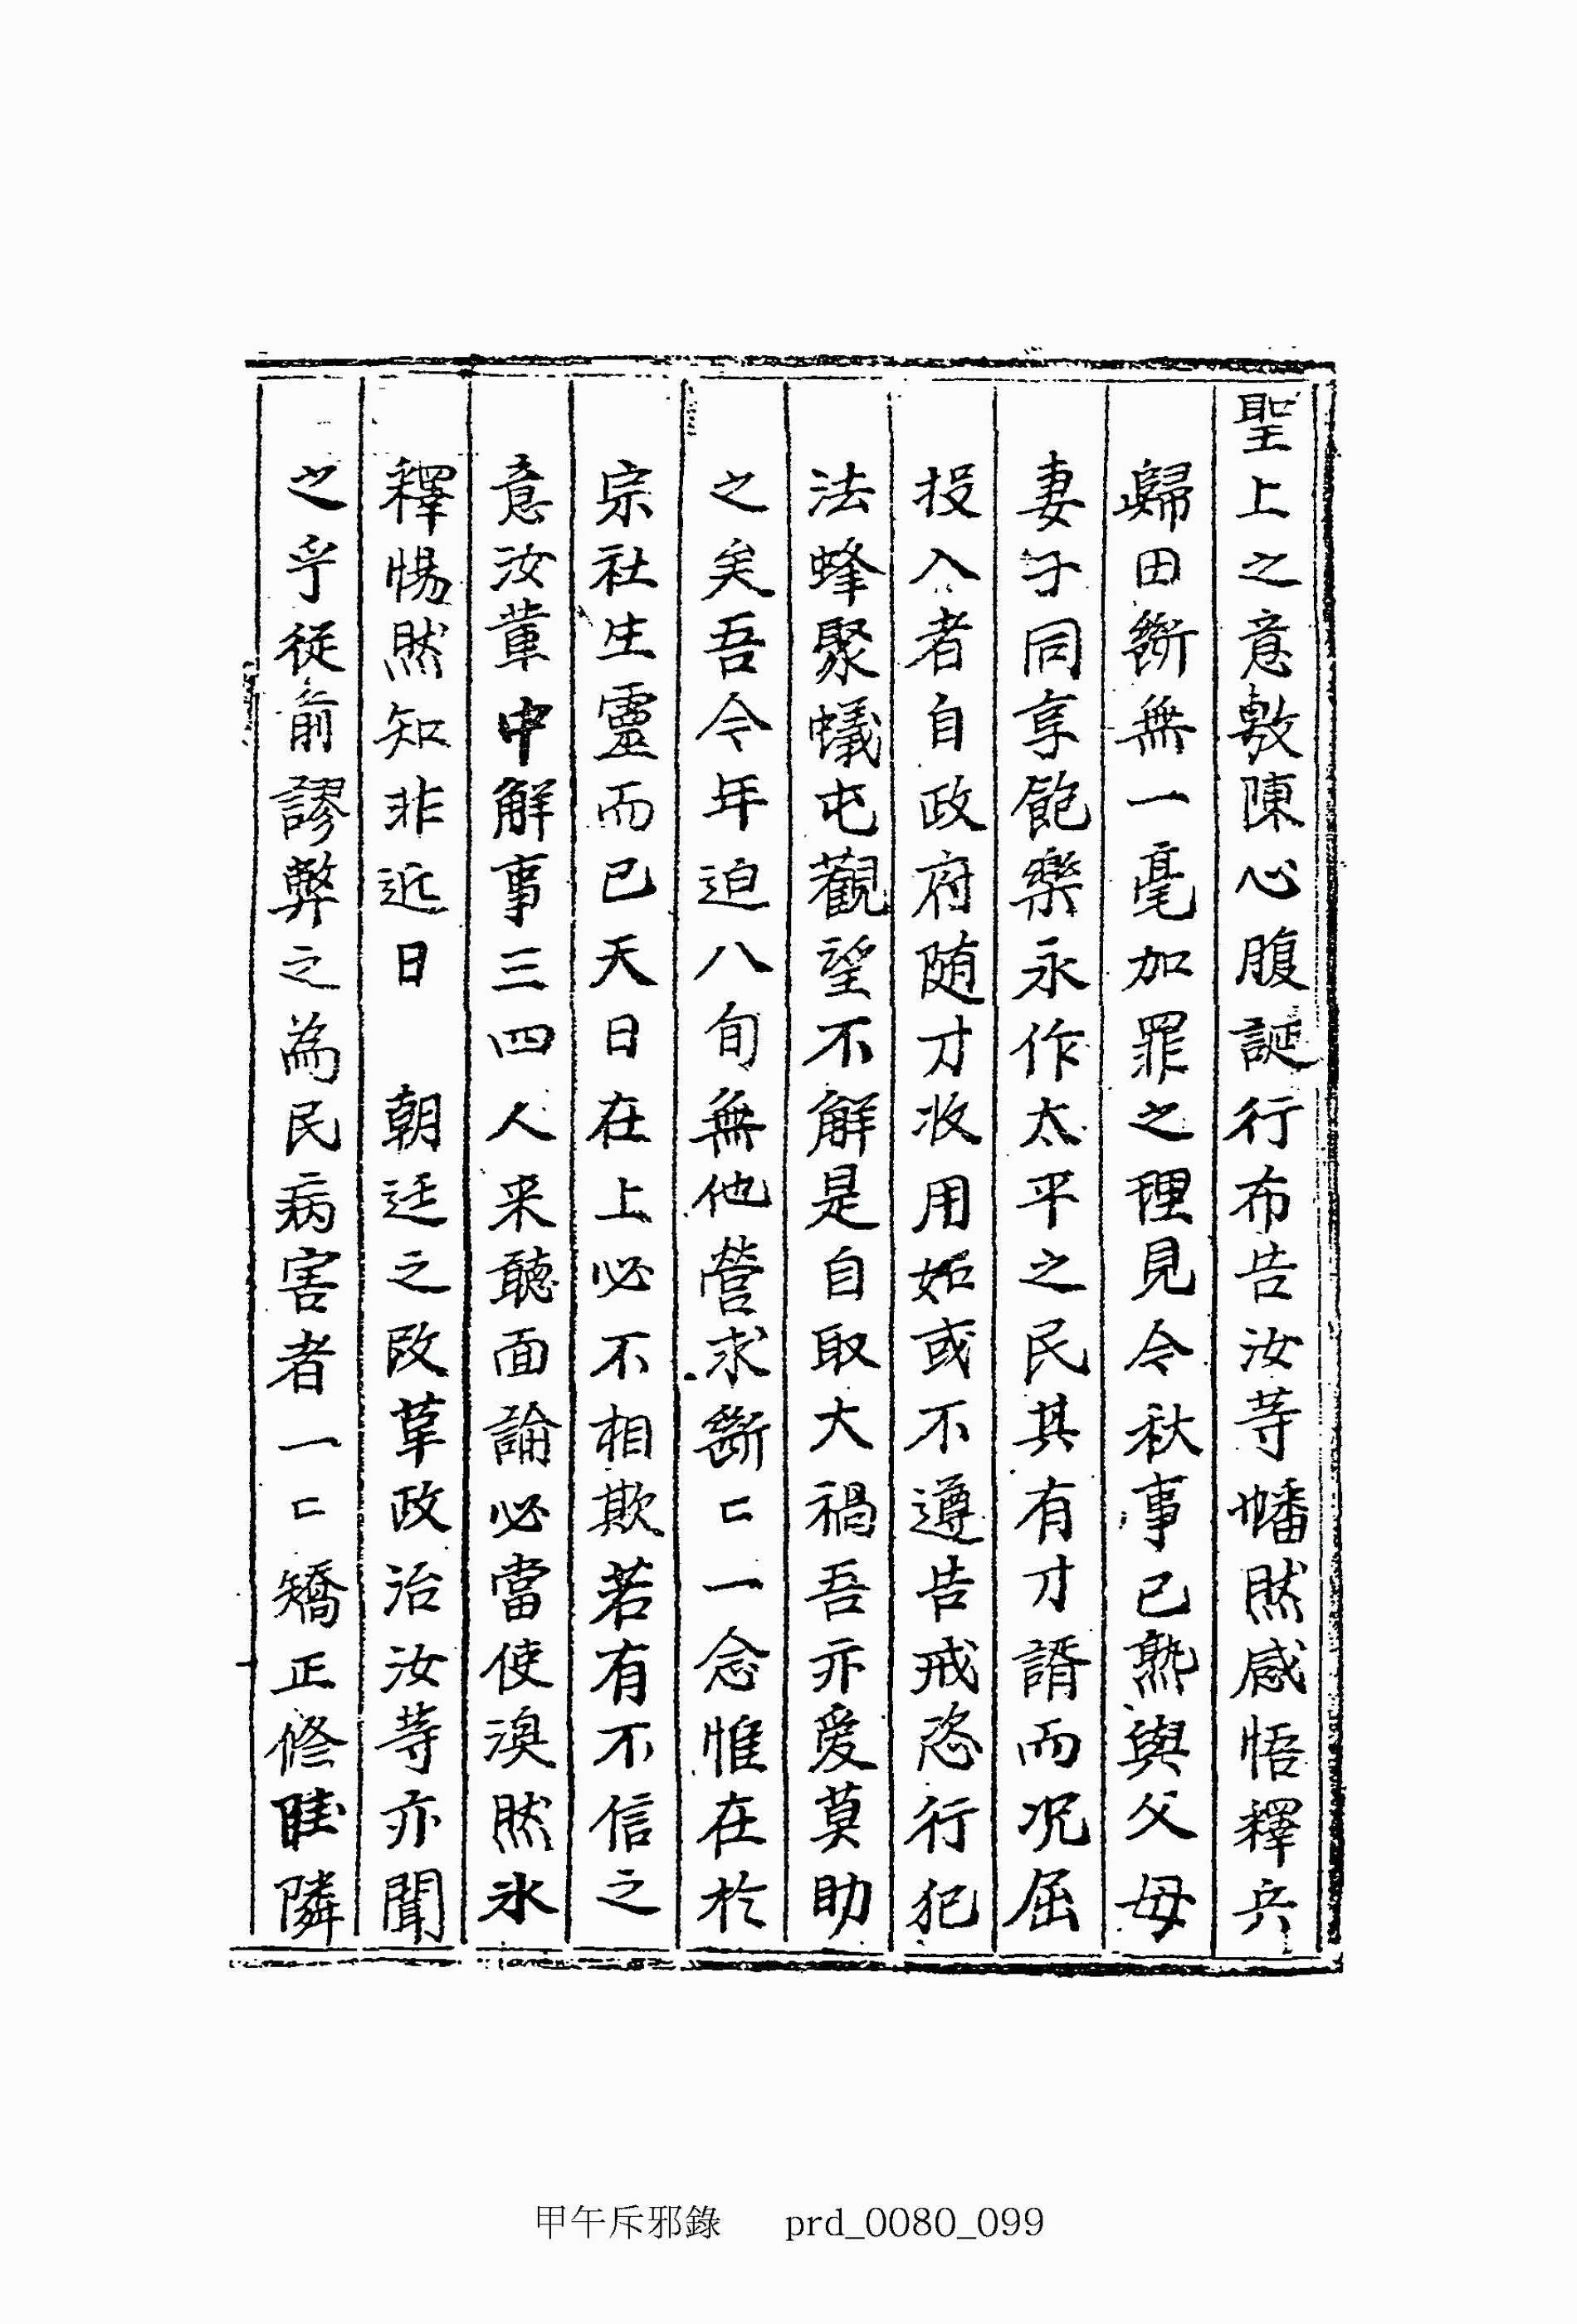 聖上之意敷陳心腹誕行布告汝等幡然感悟釋兵
歸田斷無一毫加罪之理見今秋事已熟與父母
妻子同享飽樂永作太平之民其有才諝而沉屈
投入者自政府随才收用如或不遵告戒恣行犯
法蜂聚蟻屯觀望不解是自取大禍吾亦爱莫助
之矣吾今年迫八旬無他營求斷〻一念惟在於
宗社生靈而已天日在上必不相欺若有不信之
意汝軰中解事三四人来聽面論必當使渙然氷
釋惕然知非近日 朝廷之改革政治汝等亦聞
之乎從前謬弊之為民病害者一〻矯正修睦隣
甲午斥邪錄 prd_0080_099